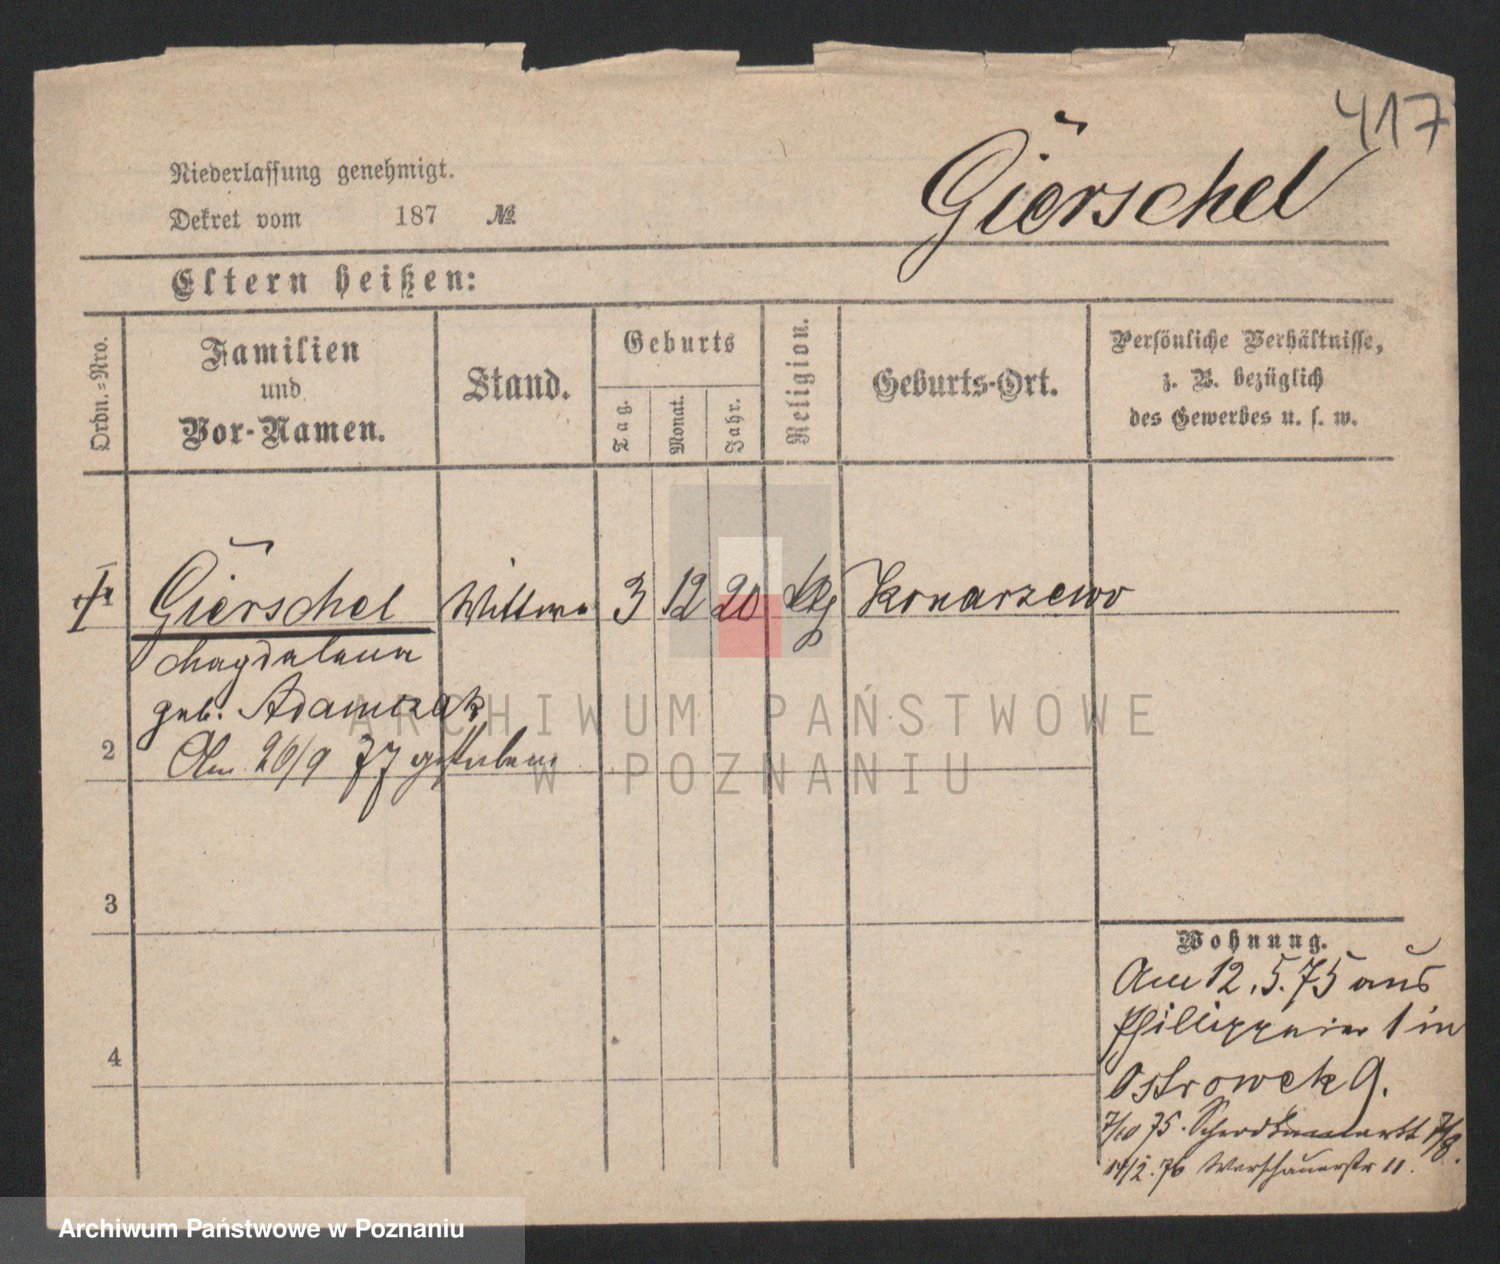 417
Gierschel
Niederlassung genehmigt.
Dekret vom 187 №
Eltern heißen:
Ordn.=Nro.
Familien
und
Vor-Namen.
Stand.
Geburts
Tag.
Monat.
Jahr.
Religion.
Geburts-Ort.
Persönliche Verhältnisse,
z. B. bezüglich
des Gewerbes u. s. w.
Gierschel Wittwe 3 12 20 Konarzewo
Magdalena
geb. Adamczak
2
Am 26/9 77 gestorben
3
4
Wohnung.
Am 12.5.75 aus
1 in
Ostrowek 9.
7/10 75. 7/8.
14/2. 76 Warschauerstr 11.
ARCHIWUM PAŃSTWOWE
W POZNANIU
Archiwum Państwowe w Poznaniu